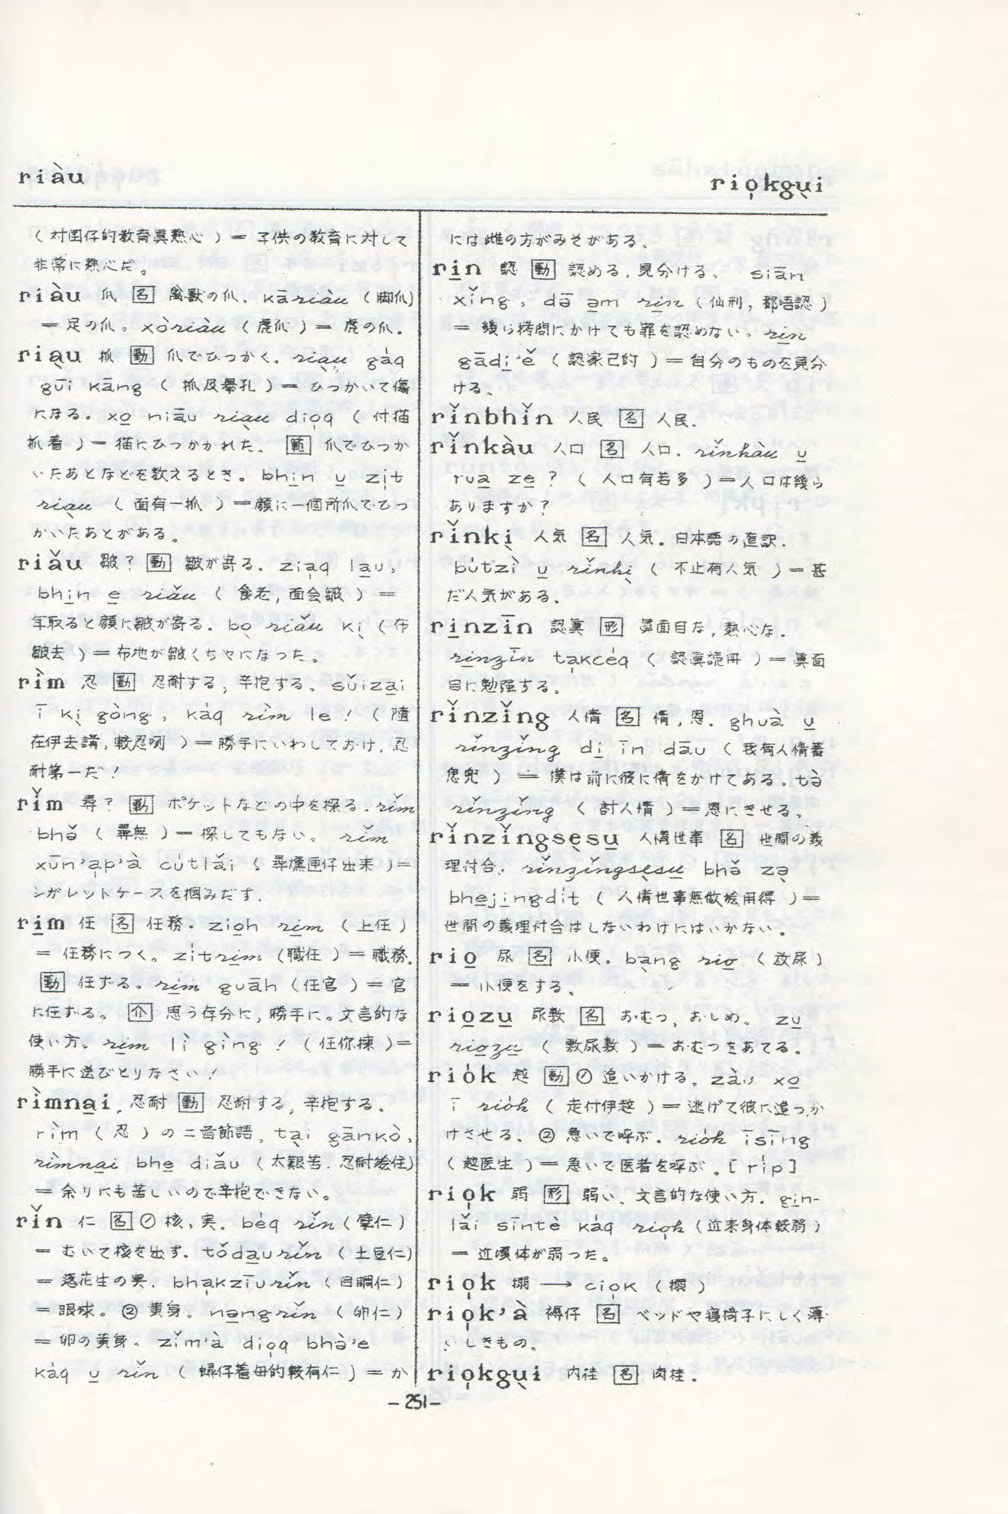 riàu
rio̍kgu̱i
(対囝仔的教育眞熱心) = 子供の教育に対して
非常に熱心だ。
riàu 爪 [名] 禽獣の爪. kāriàu (脚爪)
= 足の爪。xòriàu (虎爪) = 虎の爪.
ria̱u 抓 [動] 爪でひっかく. ria̱u gáq
gu̱i kāng ( 抓及擧孔 ) = ひっかいて傷
になる. xo̱ niāu ria̱u dio̱q ( 付猫
抓着 ) = 猫にひっかかれた. [範] 爪でひっか
いたあとなどを数えるとき。bhi̱n u̱ zi̍t
ria̱u ( 面有一抓 ) = 顔に一個所爪でひっ
かいたあとがある。
riǎu 皺? [動] 皺が寄る. ziaq la̱u,
bhi̱n e̱ riǎu ( 食老, 面会皺 ) =
年取ると顔に皺が寄る. bo̱ riǎu ki̱ ( 布
皺去 ) = 布地が皺くちゃになった。
rìm 忍 [動] 忍耐する, 辛抱する. sǔiza̱i
ī ki̱ gòng, káq rìm le! ( 隨
在伊去講, 較忍咧 ) = 勝手にいわしておけ, 忍
耐第一だ!
rǐm 尋? [動] ポケットなどの中を探る. rǐm
bhǒ ( 尋無 ) = 探してもない。 rǐm
xūn'a̍p'à cu̍tlǎi ( 尋燻匣仔出来 ) =
シガレットケースを掴みだす.
ri̱m 任 [名] 任務. zio̱h ri̱m ( 上任 )
= 任務につく。zítri̱m (職任) = 職務.
[動] 任ずる. ri̱m guāh (任官) = 官
に任ずる。 [介] 思う存分に, 勝手に。文言的な
使い方。ri̱m lì gìng! ( 任你揀 ) =
勝手に選びとりなさい!
rìmna̱i 忍耐 [動] 忍耐する, 辛抱する.
rìm ( 忍 ) の二音節語。ta̱i gānkò,
rìmna̱i bhe̱ diǎu (太艱苦. 忍耐絵住)
= 余りにも苦しいので辛抱できない。
rǐn 仁 [名] ① 核, 実. béq rǐn (擘仁)
= むいて核を出す. tǒda̱urǐn (土豆仁)
= 落花生の実. bha̍kziūrǐn (目睭仁)
= 眼球。② 黄身. nn̄grǐn ( 卵仁 )
= 卵の黄身. zǐm'à dio̱q bhò'e
káq u̱ rǐn ( 蟳仔着母的較有仁 ) = か
には雌の方がみそがある.
ri̱n 認 [動] 認める, 見分ける. siān
xǐng, dō a̱m ri̱n ( 仙刑, 都唔認 )
= 幾ら拷問にかけても罪を認めない. ri̱n
gādi̱'ě ( 認家己的 ) = 自分のものを見分
ける.
rǐnbhǐn 人民 [名] 人民.
rǐnkàu 人口 [名] 人口. rǐnkàu u̱
rua̱ ze̱? ( 人口有若多 ) = 人口は幾ら
ありますか?
rǐnki̱ 人気 [名] 人気. 日本語の直訳.
bútzì u̱ rǐnki̱ ( 不止有人気 ) = 甚
だ人気がある.
ri̱nzīn 認眞 [形] 眞面目な, 熱心な.
ri̱nzīn ta̍kcéq ( 認眞読冊 ) = 眞面
目に勉強する。
rǐnzǐng 人情 [名] 情, 恩. ghuà u̱
rǐnzǐng di̱ īn dāu ( 我有人情蓄
𪜶兜 ) = 僕は前に彼に情をかけてある. tò
rǐnzǐng ( 討人情 ) = 恩にきせる.
rǐnzǐngse̱su̱ 人情世事 [名] 世間の義
理付合. rǐnzǐngse̱su̱ bhǒ zə̱
bhe̱ji̱ngdit ( 人情世事無做絵用得 ) =
世間の義理付合はしないわけにはいかない.
rio̱ 尿 [名] 小便. ba̱ng rio̱ ( 放尿 )
= 小便をする.
rio̱zu̱ 尿敷 [名] おむつ, おしめ. zu̱
rio̱zu̱ ( 敷尿敷 ) = おむつをあてる.
riók 趒 [動] ① 追いかける. zàu xo̱
ī riók ( 走付伊趒 ) = 逃げて彼に追っか
けさせる. ② 急いで呼ぶ. riók īsīng
( 趒医生 ) = 急いで医者を呼ぶ。[ríp]
rio̍k 弱 [形] 弱い. 文言的な使い方. gi̱n-
lǎi sīntè káq rio̍k (近来身体較弱)
= 近頃体が弱った。
rio̍k → ciok
rio̍k'à 褥仔 [名] ベッドや寝椅子にしく薄
いしきもの.
rio̍kgu̱i 肉桂 [名] 肉桂.
- 251 -